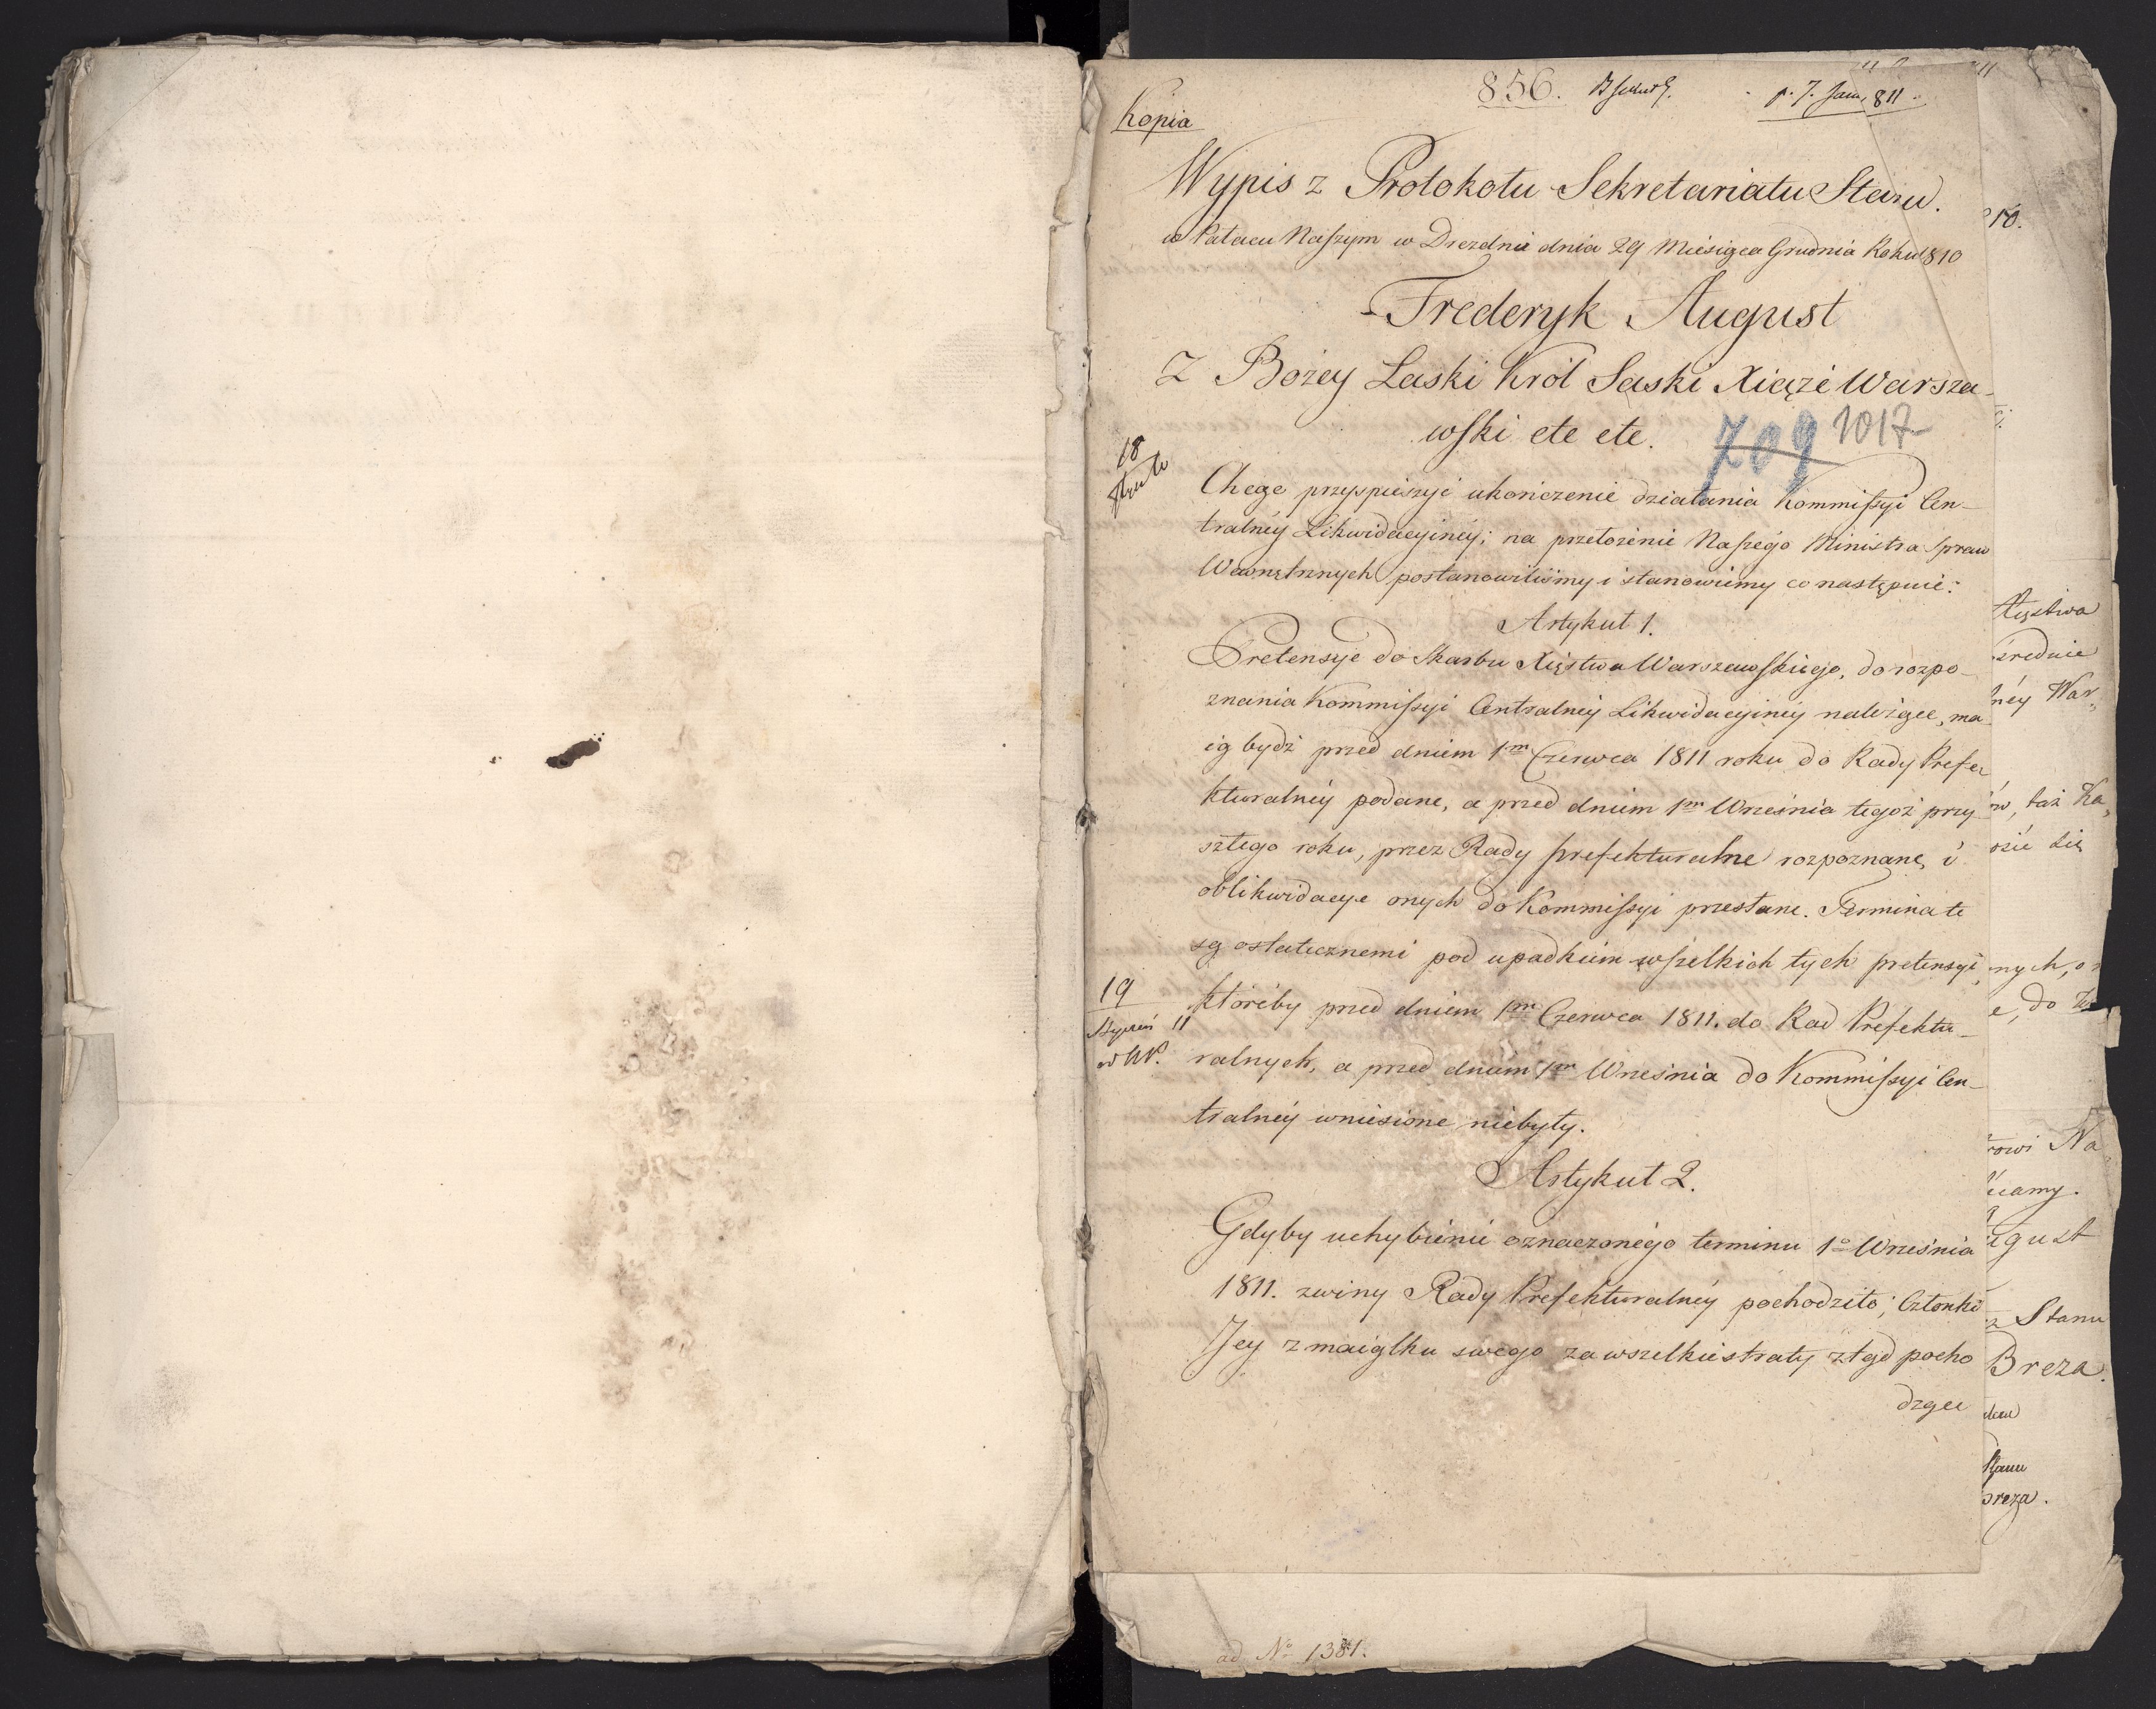 856.
p. 7. Jan. 811.
Kopia
Wypis z Protokołu Sekretariatu Stanu.
w Pałacu Naszym w Dreźnie dnia 29 Miesiąca Grudnia Roku 1810
Frederyk August
Z Bożey Łaski Król Saski Xiąże Warsza-
wski etc etc.
709 1017
18
Chcąc przyspieszyć ukończenie działania Kommissyi Cen-
tralnéy Likwidacyinéy; na przełożenie Naszégo Ministra Spraw
Wewnętrznych postanowiliśmy i stanowiemy co następuie:
Artykuł 1.
Pretensye do Skarbu Xięstwa Warszawskiego, do rozpo-
znania Kommissyi Centralnéy Likwidacyinéy należące, ma
ią bydź przed dniem 1m Czerwca 1811 roku do Rady Prefe
kturalnéy podane, a przed dniem 1m Września tegoż przy
szłego roku, przez Rady prefekturalne rozpoznane, i
oblikwidacye onych do Kommissyi przesłane. Termina te
są ostatecznemi pod upadkiem wszelkich tych pretensyi,
któreby przed dniem 1m Czerwca 1811. do Rad Prefektu-
19
ralnych, a przed dniem 1m Września do Kommissyi Cen-
tralnéy wniesione niebyły.
Artykuł 2.
Gdyby uchybienie oznaczonégo terminu 1o Września
1811. zwiny Rady Prefekturalnéy pochodziło; Członki
Jey z maiątku swego za wszelkie straty ztąd pocho
dzące
ad No 1381.
10.
Xięstwa
średnie
néy War,
ów, taż Ka,
osić się
nych,
e, do
rowi Na
camy.
ugust
z Stanu
Breza.
Stanu
Breza.